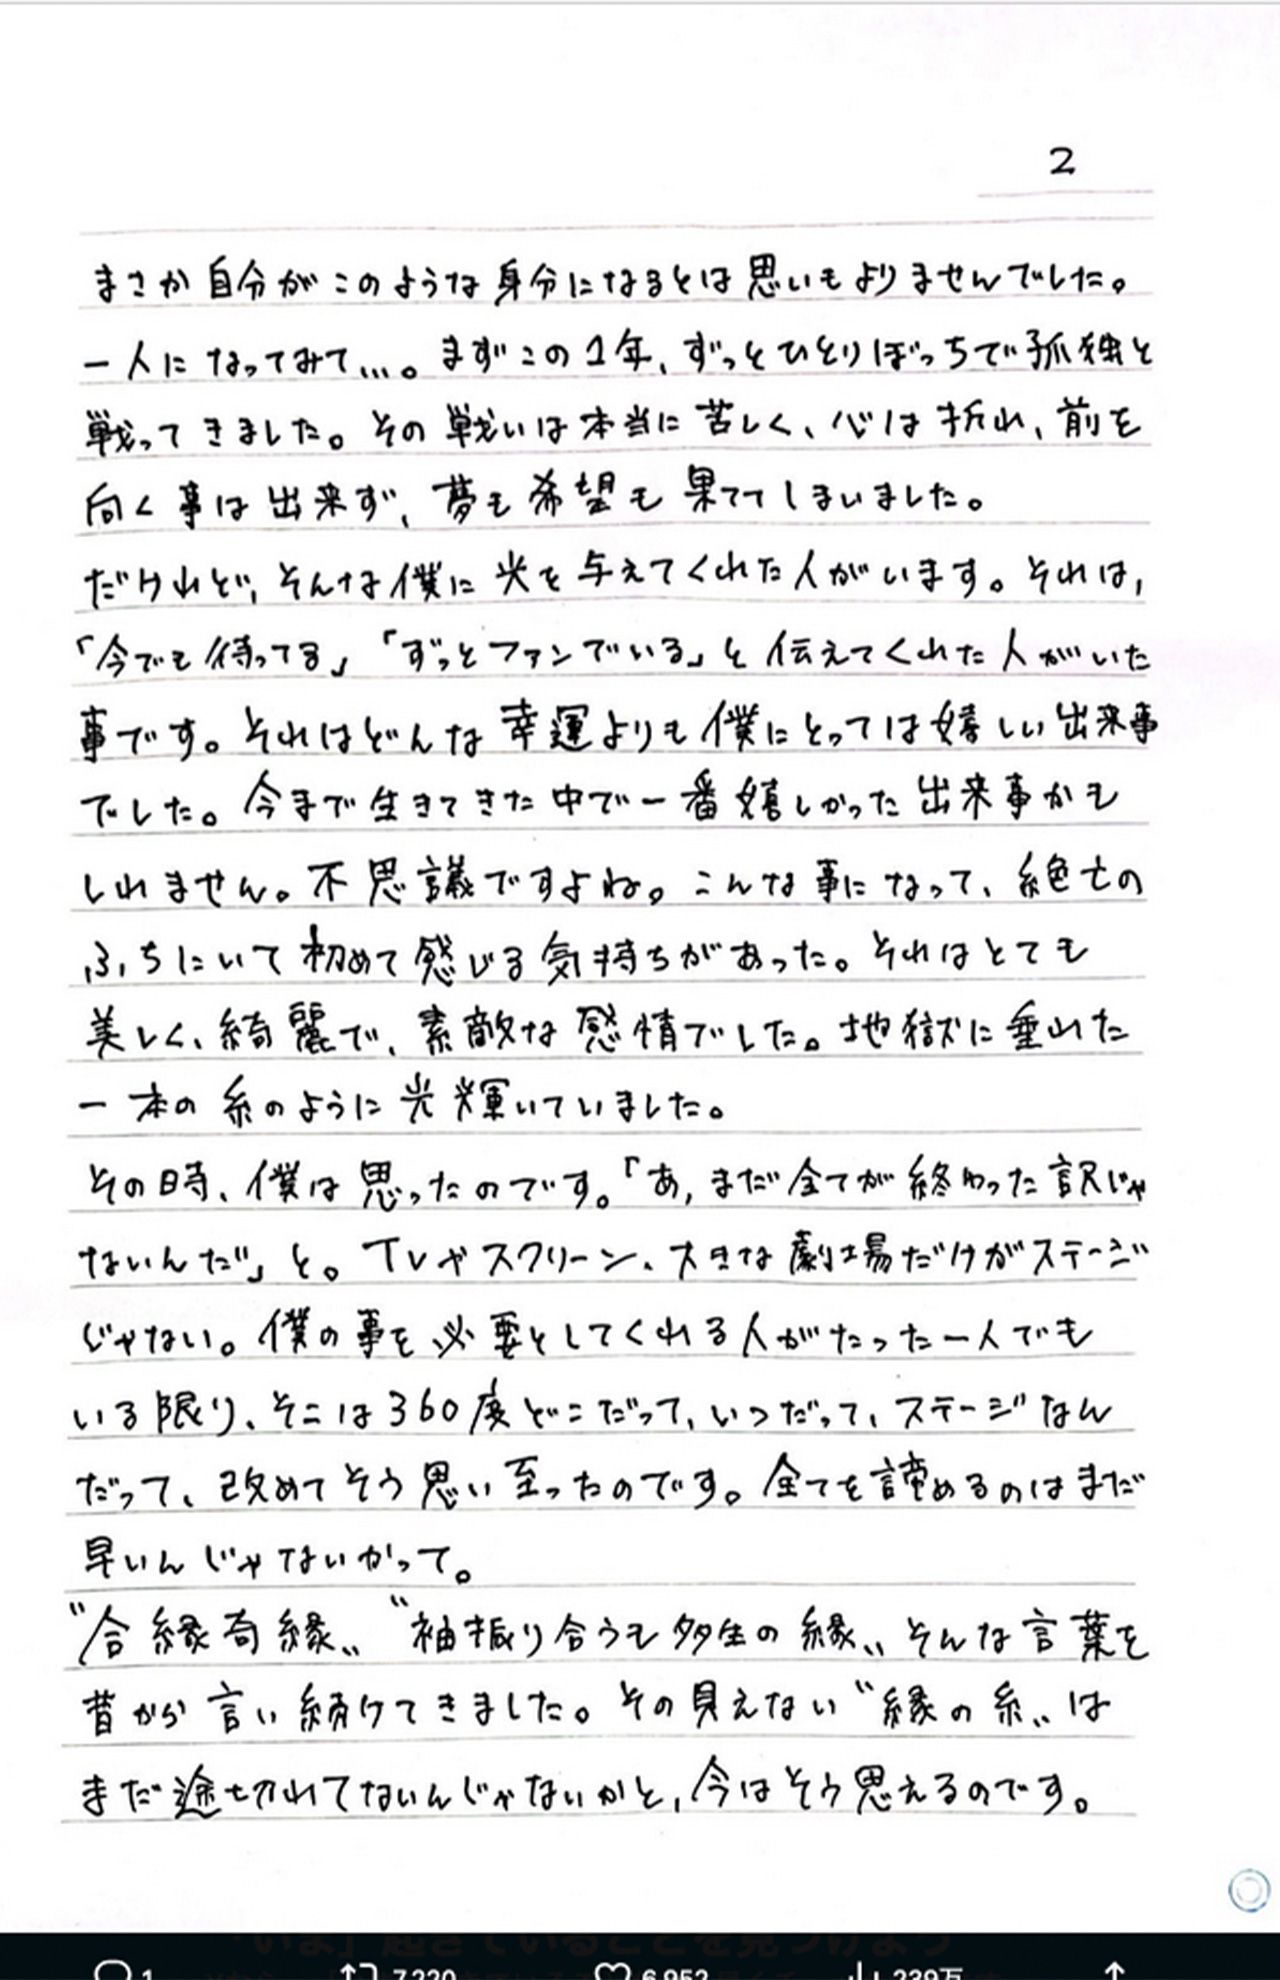 2
まさか自分がこのような身分になるとは思いもよりませんでした。
一人になってみて…。まずこの1年、ずっとひとりぼっちで孤独と
戦ってきました。その戦いは本当に苦しく、心は折れ、前を
向く事は出来ず、夢も希望も果ててしまいました。
だけれど、そんな僕に光を与えてくれた人がいます。それは、
「今でも待ってる」「ずっとファンでいる」と伝えてくれた人がいた
事です。それはどんな幸運よりも僕にとっては嬉しい出来事
でした。今まで生きてきた中で一番嬉しかった出来事かも
しれません。不思議ですよね。こんな事になって、絶亡の
ふちにいて初めて感じる気持ちがあった。それはとても
美しく、綺麗で、素敵な感情でした。地獄に垂れた
一本の糸のように光輝いていました。
その時、僕は思ったのです。「あ、まだ全てが終わった訳じゃ
ないんだ」と。TVやスクリーン、大きな劇場だけがステージ
じゃない。僕の事を必要としてくれる人がたった一人でも
いる限り、そこは360度どこだって、いつだって、ステージなん
だって、改めてそう思い至ったのです。全てを諦めるのはまだ
早いんじゃないかって。
〝合縁奇縁〟〝袖振り合うも多生の縁〟そんな言葉を
昔から言い続けてきました。その見えない〝縁の糸〟は
まだ途切れてないんじゃないかと、今はそう思えるのです。
1 7,220 6,952 239万